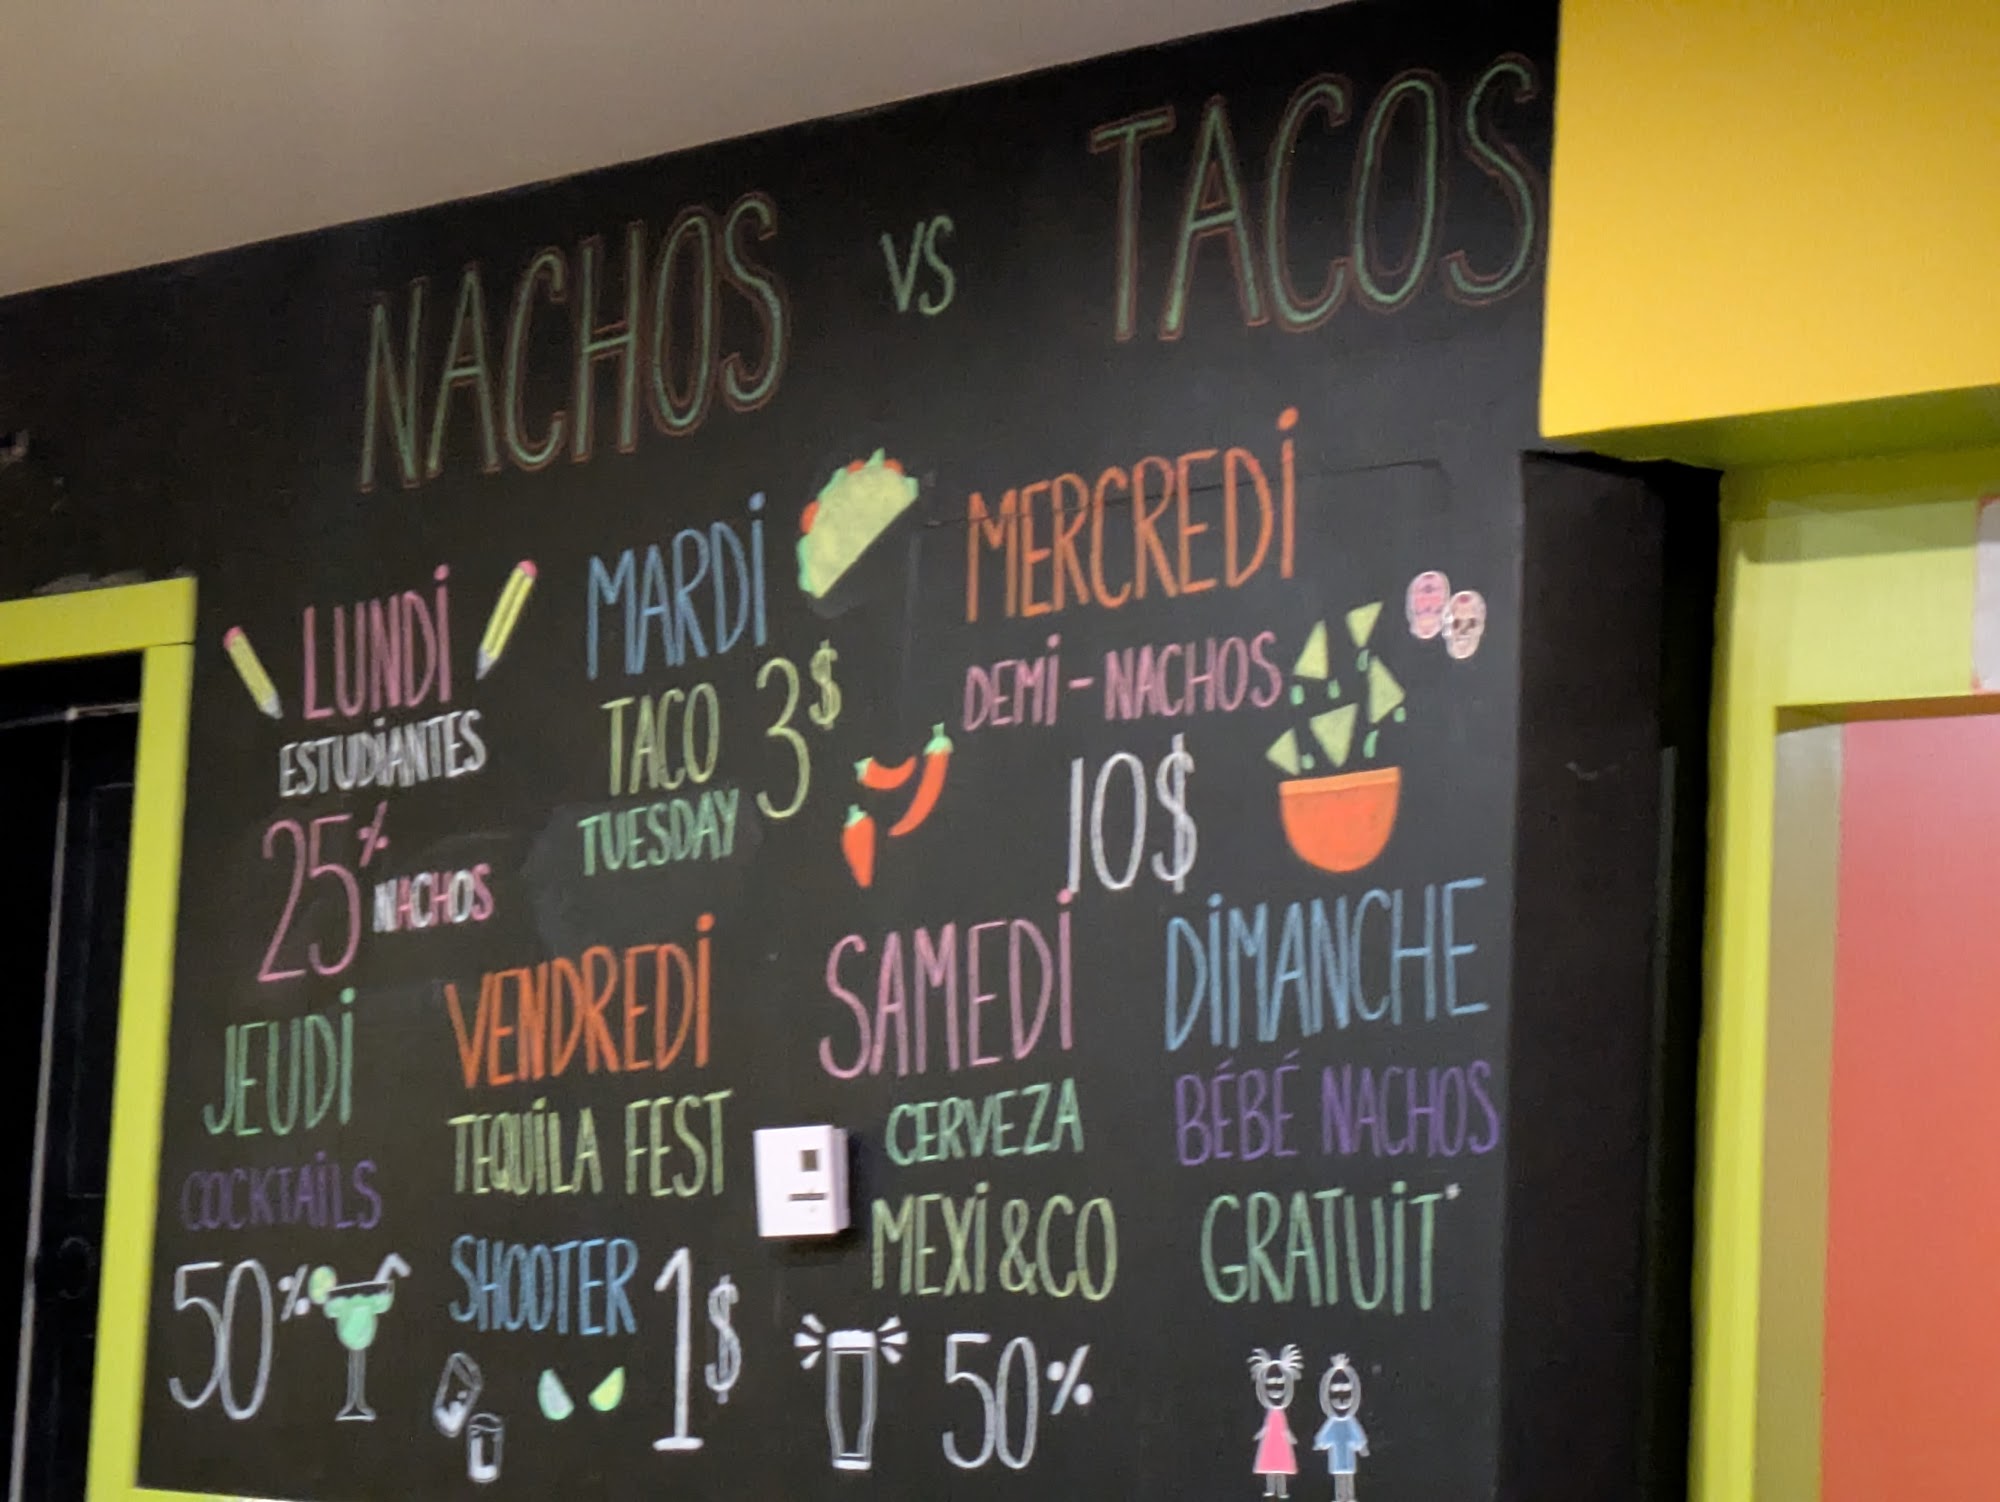 NACHOS VS TACOS
LUNDI
ESTUDIANTES
25% NACHOS
MARDI
TACO 3$
TUESDAY
MERCREDI
DEMI-NACHOS
10$
JEUDI
COCKTAILS
50%
VENDREDI
TEQUILA FEST
SHOOTER 1$
SAMEDI
CERVEZA
MEXI&CO
50%
DIMANCHE
BÉBÉ NACHOS
GRATUIT*